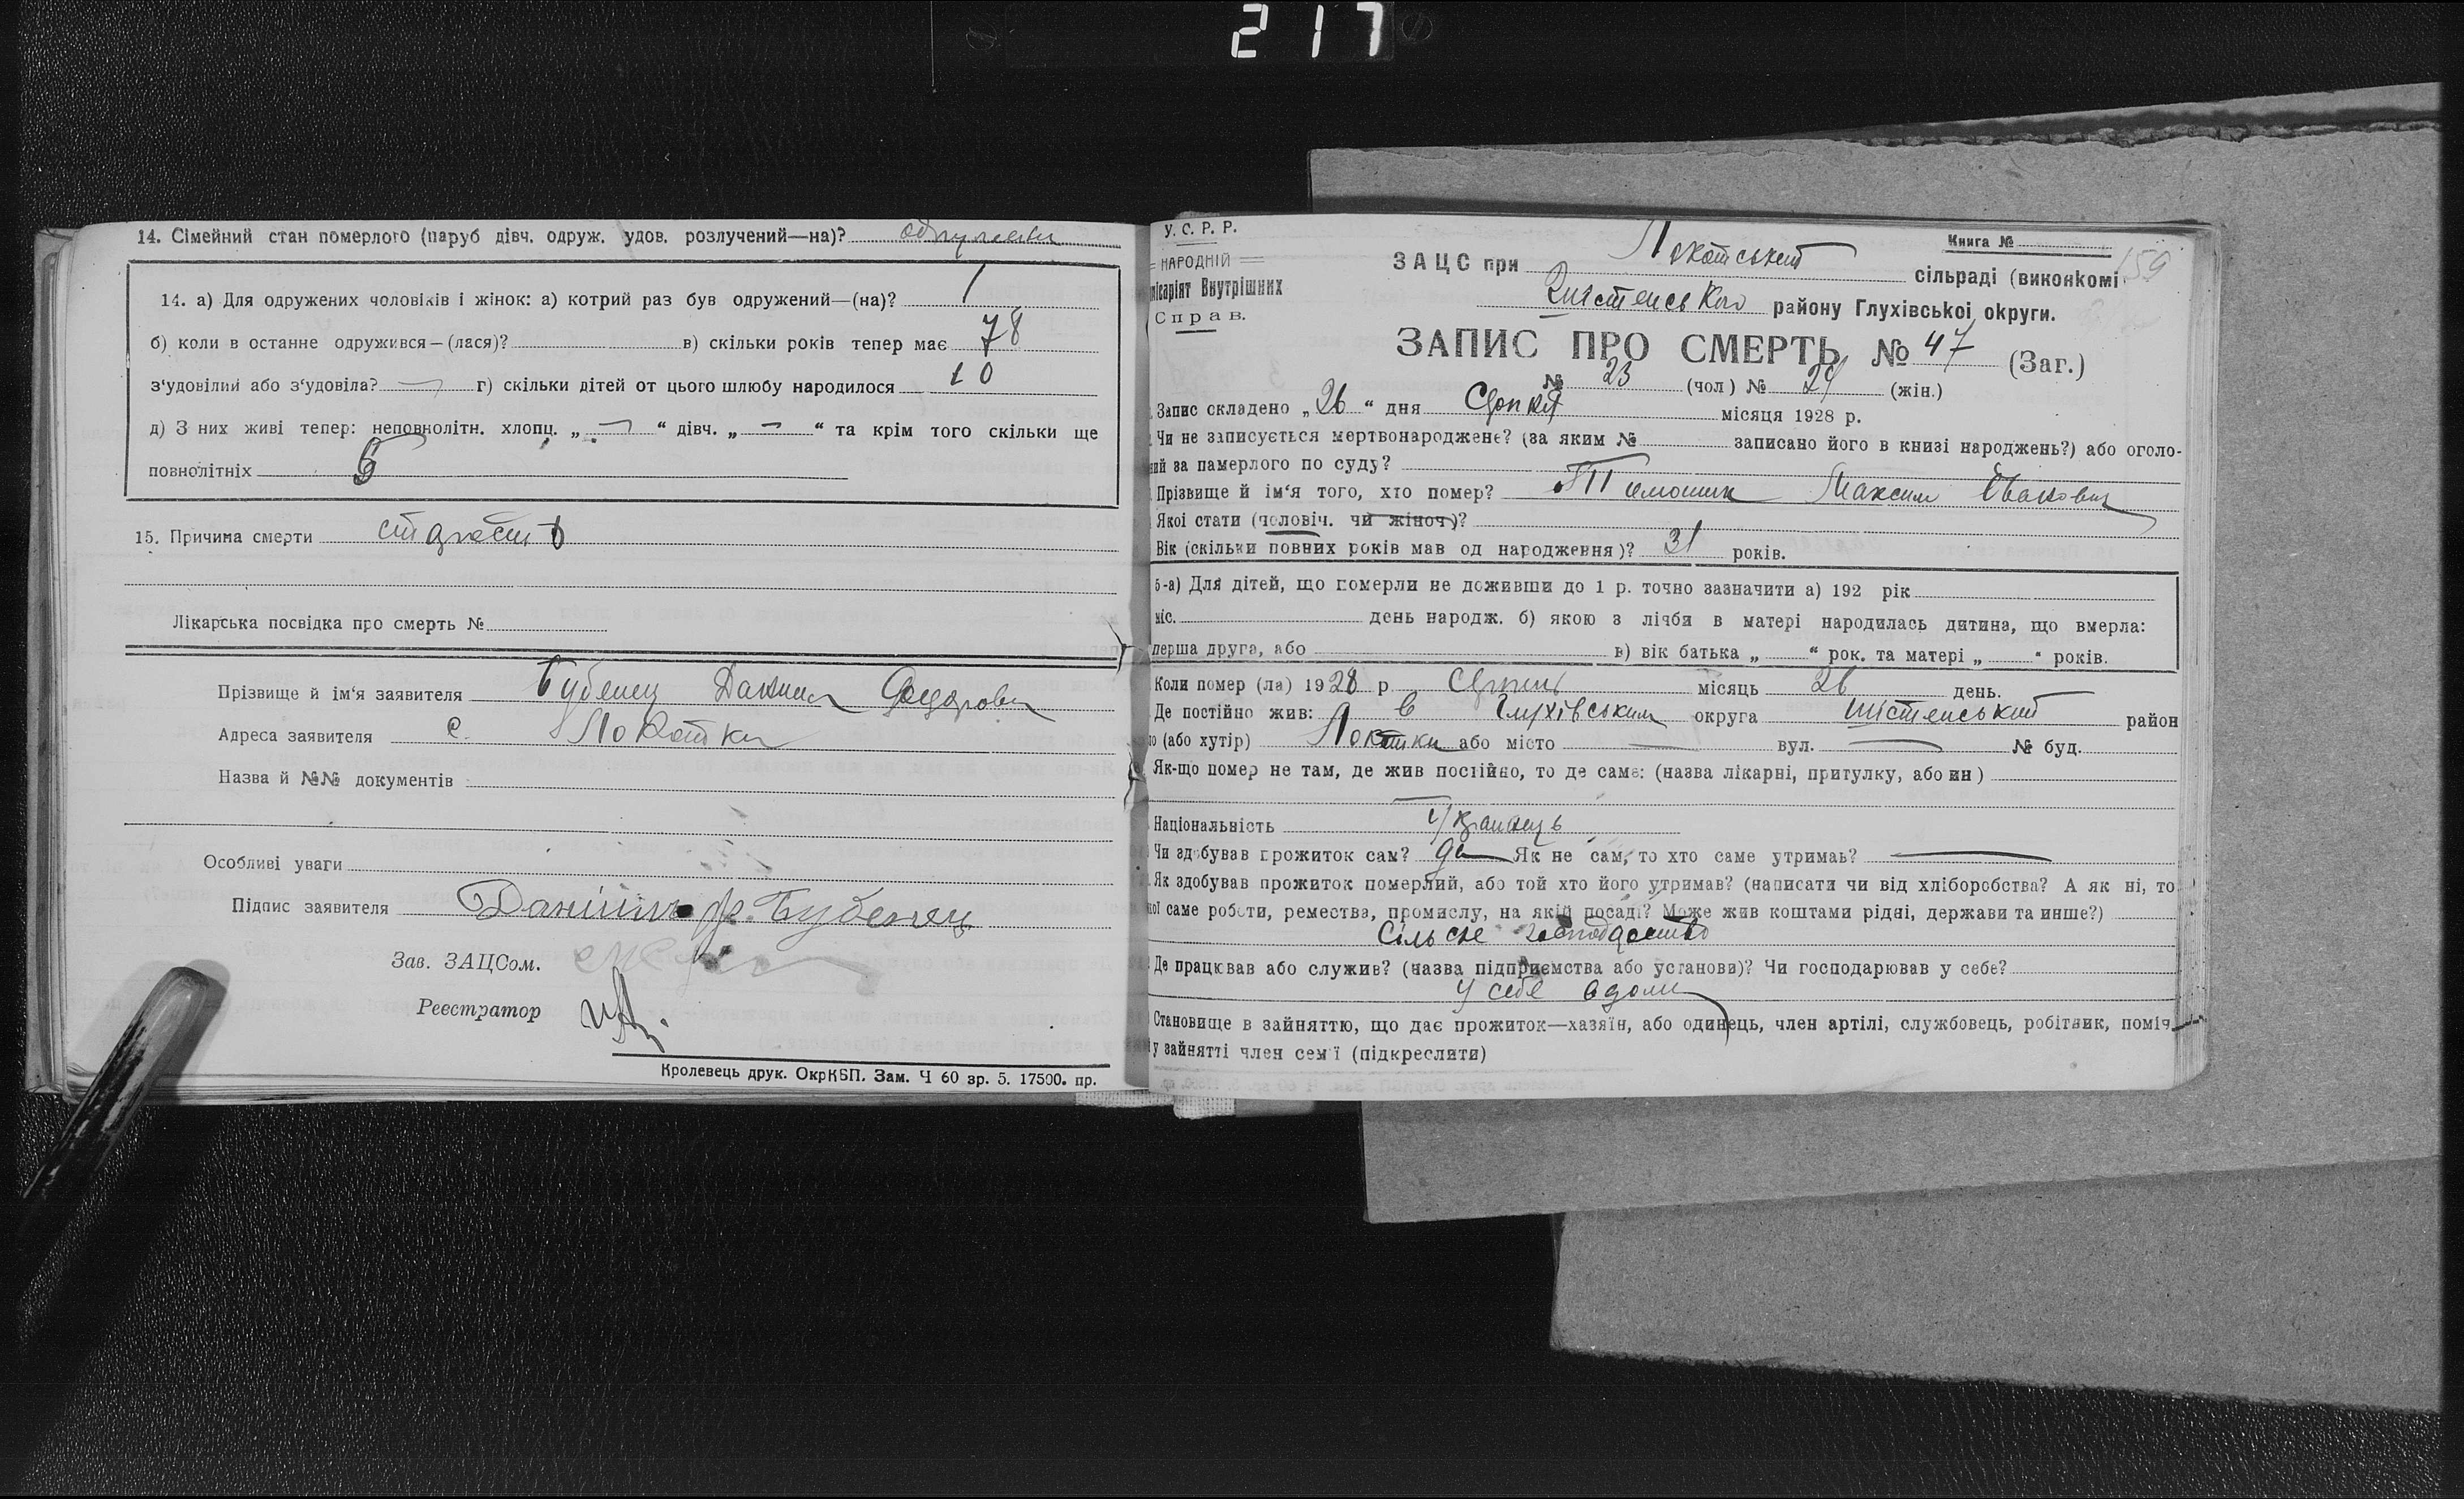 217
14. Сімейний стан померлого (паруб дівч. одруж. удов. розлучений—на)?
14. а) Для одружених чоловіків і жінок: а) котрий раз був одружений—(на)? 1
б) коли в останне одружився—(лася)? в) скільки років тепер має 78
з'удовілий або з'удовіла? — г) скільки дітей от цього шлюбу народилося 10
д) З них живі тепер: неповнолітн. хлопц. „ — “ дівч. „ — “ та крім того скільки ще
повнолітніх 5
15. Причина смерти старость
Лікарська посвідка про смерть №
Прізвище й ім'я заявителя Бубенец Данило
Адреса заявителя с. Локотки
Назва й №№ документів
Особливі уваги
Підпис заявителя Бубенец
Зав. ЗАЦСом.
Реєстратор
Кролевець друк. ОкрКБП. Зам. Ч 60 зр. 5. 17500. пр.
У. С. Р. Р.
НАРОДНІЙ
місаріят Внутрішних
Справ.
Книга №
159
ЗАЦС при Локотський сільраді (виконкомі
району Глухівської округи.
ЗАПИС ПРО СМЕРТЬ № 47 (Заг.)
№ 23 (чол) № 24 (жін.)
Запис складено „26“ дня Серпня місяця 1928 р.
Чи не записується мертвонароджене? (за яким № записано його в книзі народжень?) або оголо-
ний за памерлого по суду?
Прізвище й ім'я того, хто помер? Тимошик Максим Іванович
Якої стати (чоловіч. чи жіноч)?
Вік (скільки повних років мав од народження)? 31 років.
5-а) Для дітей, що померли не доживши до 1 р. точно зазначити а) 192 рік
міс. день народж. б) якою з лічби в матері народилась дитина, що вмерла:
перша друга, або в) вік батька „ “ рок. та матері „ “ років.
Коли помер (ла) 1928 р. Серпень місяць 26 день.
Де постійно жив: в Глухівським округа Шістенський район
(або хутір) Локотки або місто — вул. — № буд.
Як-що помер не там, де жив постійно, то де саме: (назва лікарні, притулку, або ин)
Національність Українець
Чи здобував прожиток сам? да Як не сам, то хто саме утримав? —
Як здобував прожиток померлий, або той хто його утримав? (написати чи від хліборобства? А як ні, то
саме роботи, ремества, промислу, на якій посаді? Може жив коштами рідні, держави та инше?)
Сільске господарство
Де працював або служив? (назва підприємства або установи)? Чи господарював у себе?
у себе вдома
Становище в зайняттю, що дає прожиток—хазяїн, або одинець, член артілі, службовець, робітник, поміч.
у зайнятті член сем'ї (підкреслити)